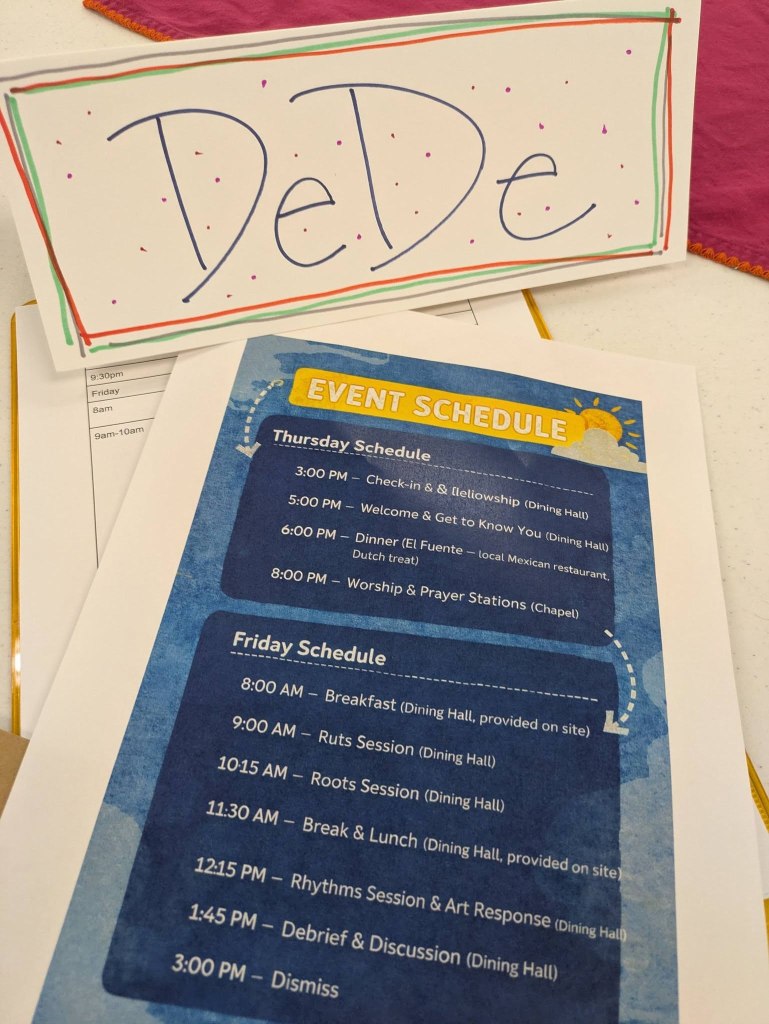 DeDe
9:30pm
Friday
8am
9am-10am
EVENT SCHEDULE
Thursday Schedule
3:00 PM – Check-in & & llellowship (Dining Hall)
5:00 PM – Welcome & Get to Know You (Dining Hall)
6:00 PM – Dinner (El Fuente – local Mexican restaurant.
Dutch treat)
8:00 PM – Worship & Prayer Stations (Chapel)
Friday Schedule
8:00 AM – Breakfast (Dining Hall, provided on site)
9:00 AM – Ruts Session (Dining Hall)
10:15 AM – Roots Session (Dining Hall)
11:30 AM – Break & Lunch (Dining Hall, provided on site)
12:15 PM – Rhythms Session & Art Response (Dining Hall)
1:45 PM – Debrief & Discussion (Dining Hall)
3:00 PM – Dismiss